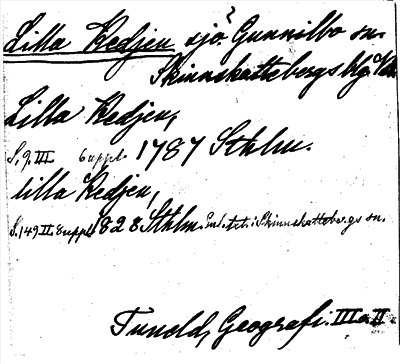 Lilla Kedjen, sjö? Gunnilbo sn.
Skinnskattebergs hg. Vstm.
Lilla Kedjen,
S. 9. III 6 uppl. 1787 Sthlm.
lilla Kedjen,
S. 149 II. 8 uppl. 1828 Sthlm. i Skinnskattebergs sn.
Tuneld, Geografi. III o. II